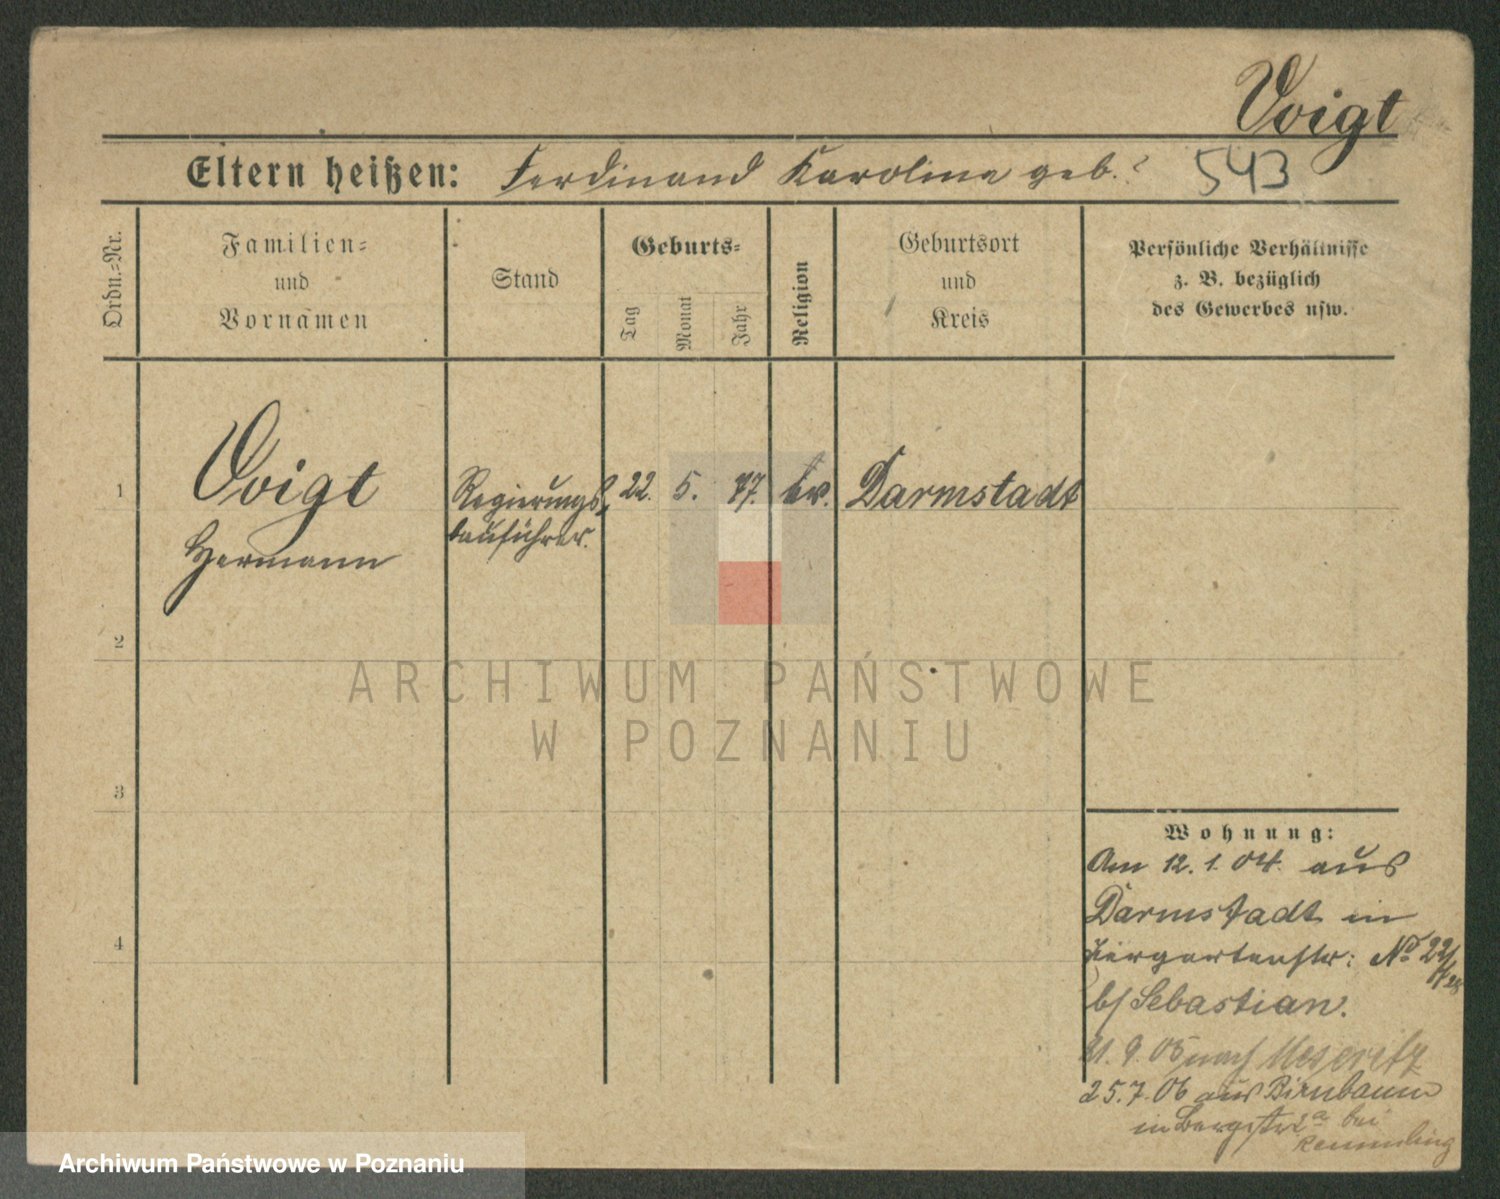 Voigt
Eltern heißen: Ferdinand Karoline geb. ?
543
Ordn.=Nr.
Familien=
und
Vornamen
Stand
Geburts=
Tag
Monat
Jahr
Religion
Geburtsort
und
Kreis
Persönliche Verhältnisse
z. B. bezüglich
des Gewerbes usw.
1
Voigt
Hermann
Regierungs
bauführer.
22. 5. 77.
ev.
Darmstadt
2
3
4
ARCHIWUM PAŃSTWOWE
W POZNANIU
Wohnung:
Am 12. 1. 04. aus
Darmstadt in
Tiergartenstr: No 22/
b/ Sebastian.
9. 05 nach Meseritz
25. 7. 06 aus Birnbaum
in Bergstr 2a bei
Archiwum Państwowe w Poznaniu